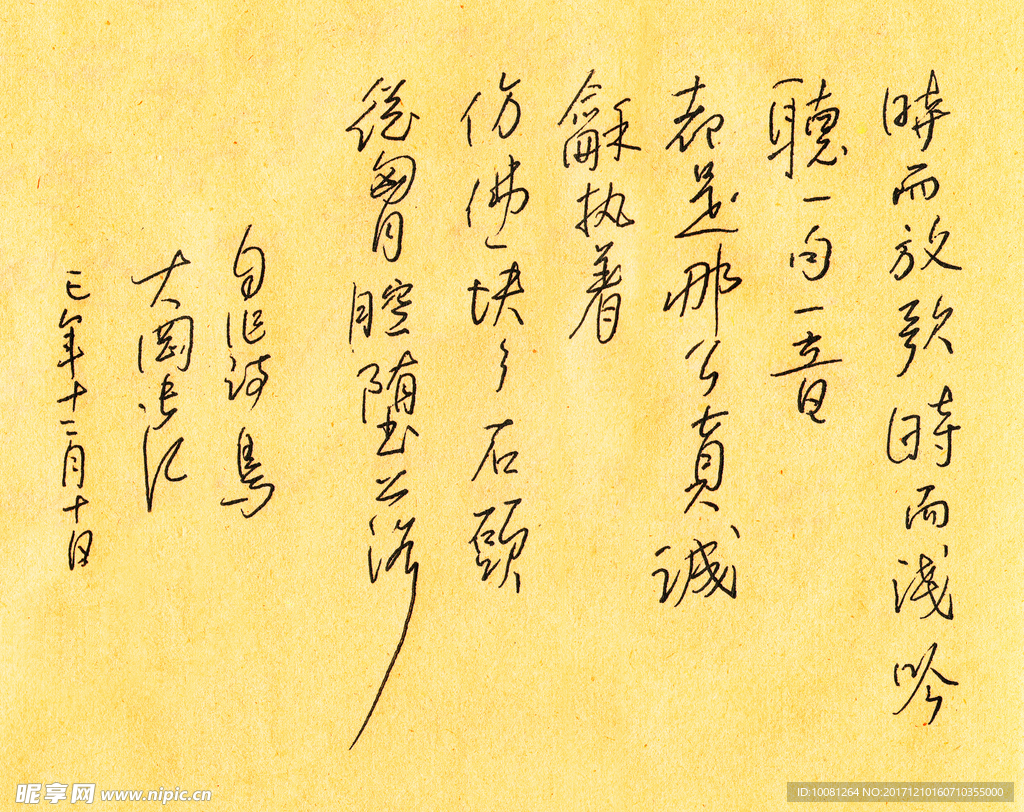 時而放歌時而淺吟
聽一句一音
都是那么真誠
龢执着
仿佛一块々石頭
從胷腔堕落
自作詩
大岡
年十二月十日
昵享网 www.nipic.cn
ID:10081264 NO:20171210160710355000